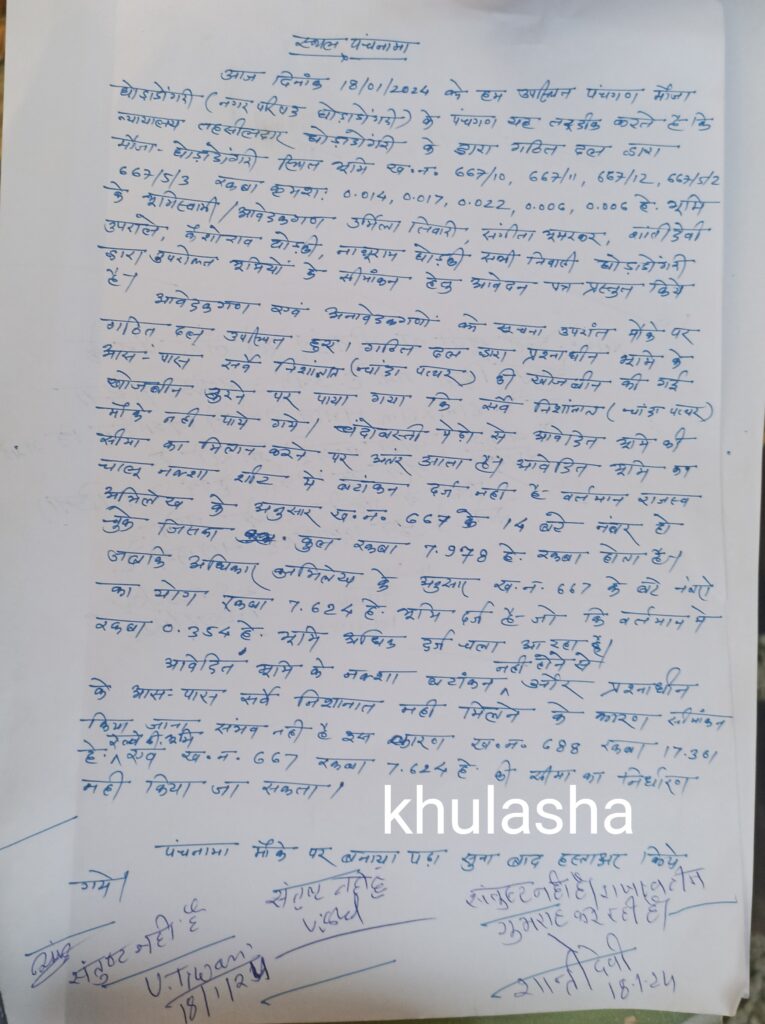 स्थल पंचनामा
आज दिनांक 18/01/2024 को हम उपस्थित पंचगण मौजा
घोड़ाडोंगरी (नगर परिषद घोड़ाडोंगरी) के पंचगण यह तस्दीक करते है कि
न्यायालय तहसीलदार घोड़ाडोंगरी के द्वारा गठित दल द्वारा
मौजा- घोड़ाडोंगरी स्थित भूमि ख.न. 667/10, 667/11, 667/12, 667/5/2
667/5/3 रकबा क्रमश: 0.014, 0.017, 0.022, 0.006, 0.006 हे. भूमि
के भूमिस्वामी/आवेदकगण उर्मिला तिवारी, संगीता घूमरकर, शांतीदेवी
उपराले, केशोराव घोड़की, नाथूराम घोड़की सभी निवासी घोड़ाडोंगरी
द्वारा उपरोक्त भूमियों के सीमांकन हेतु आवेदन पत्र प्रस्तुत किये
है।
आवेदकगण एवं अनावेदकगणों को सूचना उपरांत मौके पर
गठित दल उपस्थित हुए। गठित दल द्वारा प्रश्नाधीन भूमि के
आस-पास सर्वे निशांनात (चांदा पत्थर) की खोजबीन की गई
खोजबीन करने पर पाया गया कि सर्वे निशांनात (चांदा पत्थर)
मौके नही पाये गये। बंदोबस्ती मेड़ो से आवेदित भूमि की
सीमा का मिलान करने पर अंतर आता है। आवेदित भूमि का
चालू नक्शा शीट में बटांकन दर्ज नही है वर्तमान राजस्व
अभिलेख के अनुसार ख.न. 667 के 14 बटे नंबर हो
चुके जिसका कुल रकबा 7.978 हे. रकबा होता है।
जबकि अधिकार अभिलेख के अनुसार ख.न. 667 के बटे नंबरो
का योग रकबा 7.624 हे. भूमि दर्ज है जो कि वर्तमान मे
रकबा 0.354 हे. भूमि अधिक दर्ज चला आ रहा है।
आवेदित भूमि के नक्शा बटांकन नही होने से और प्रश्नाधीन
के आस-पास सर्वे निशानात नही मिलने के कारण सीमांकन
किया जाना संभव नही है इस कारण ख.न. 688 रकबा 17.361
हे. रेल्वे की भूमि एवं ख.न. 667 रकबा 7.624 हे. की सीमा का निर्धारण
नही किया जा सकता।
khulasha
पंचनामा मौके पर बनाया पढ़ा सुना बाद हस्ताक्षर किये
गये।
संतुष्ट नही है
संतुष्ट नही है
V. Tiwari
18/1/24
संतुष्ट नही है।
गुमराह कर रही है।
शान्ती देवी
18-1-24